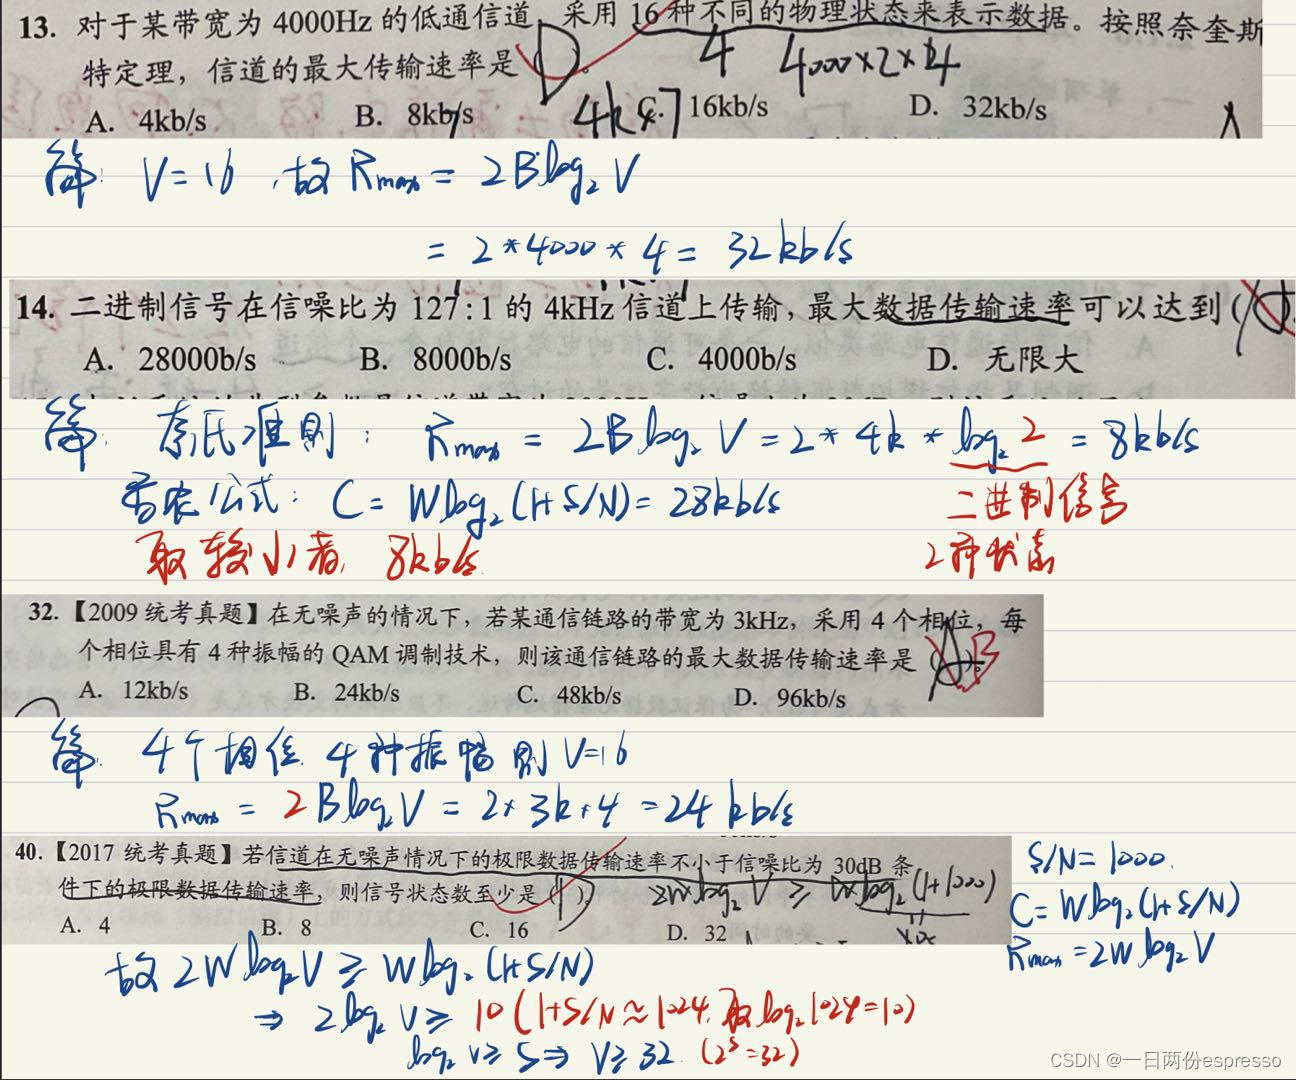 13. 对于某带宽为 4000Hz 的低通信道，采用 16 种不同的物理状态来表示数据。按照奈奎斯
特定理，信道的最大传输速率是（D）。
4 4000×2×4
A. 4kb/s B. 8kb/s C. 16kb/s D. 32kb/s
答: V=16，故 Rmax = 2Blog₂V
= 2*4000*4 = 32kb/s
14. 二进制信号在信噪比为 127:1 的 4kHz 信道上传输，最大数据传输速率可以达到(
A. 28000b/s B. 8000b/s C. 4000b/s D. 无限大
答: 奈氏准则: Rmax = 2Blog₂V = 2*4k*log₂2 = 8kb/s
香农公式: C = Wlog₂(1+S/N) = 28kb/s 二进制信号
取较小者, 8kb/s. 2种状态
32.【2009 统考真题】在无噪声的情况下，若某通信链路的带宽为 3kHz，采用 4 个相位，每
个相位具有 4 种振幅的 QAM 调制技术，则该通信链路的最大数据传输速率是（A）。B
A. 12kb/s B. 24kb/s C. 48kb/s D. 96kb/s
答. 4个相位. 4种振幅 则 V=16
Rmax = 2Blog₂V = 2*3k*4 = 24 kb/s
40.【2017 统考真题】若信道在无噪声情况下的极限数据传输速率不小于信噪比为 30dB 条
件下的极限数据传输速率，则信号状态数至少是（D）。 2Wlog₂V ≥ Wlog₂(1+1000)
A. 4 B. 8 C. 16 D. 32
S/N = 1000.
C = Wlog₂(1+S/N)
Rmax = 2Wlog₂V
故 2Wlog₂V ≥ Wlog₂(1+S/N)
⇒ 2log₂V ≥ 10 (1+S/N ≈ 1024, 取log₂1024=10)
log₂V ≥ 5 ⇒ V ≥ 32. (2⁵=32)
CSDN @一日两份espresso